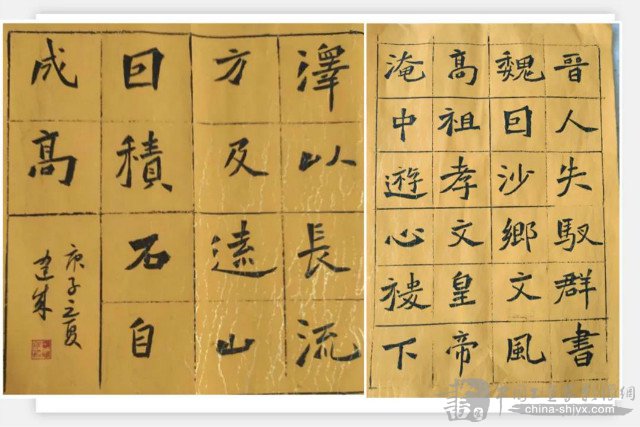 澤以長流
方及遠山
囙積石自
成高
庚子之夏
建成
晋人失馭群書
魏囙沙鄉文風
高祖孝文皇帝
淹中遊心稷下
china-shjyx.com